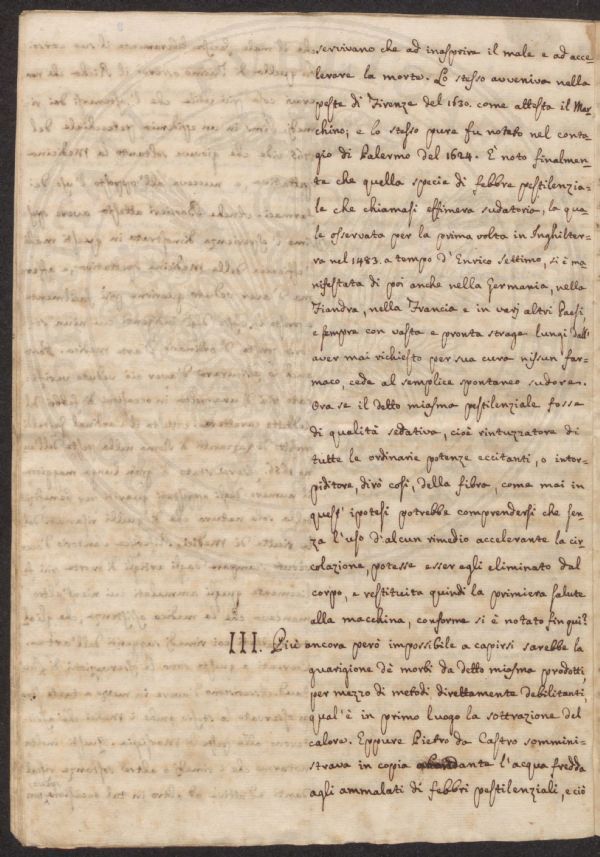 servivano che ad inasprire il male e ad acce-
lerare la morte. Lo stesso avveniva nella
peste di Firenze del 1630. come attesta il Mar-
chino; e lo stesso pure fu notato nel conta-
gio di Palermo del 1624. È noto finalmen-
te che quella specie di febbre pestilenzia-
le che chiamasi effimera sudatoria, la qua-
le osservata per la prima volta in Inghilter-
ra nel 1483. a tempo d'Enrico Settimo, si è ma-
nifestata di poi anche nella Germania, nella
Fiandra, nella Francia e in varj altri Paesi,
e sempre con vasta e pronta strage lungi dall'
aver mai richiesto per sua cura nissun far-
maco, cede al semplice spontaneo sudore.
Ora se il detto miasma pestilenziale fosse
di qualità sedativa, cioè rintuzzatore di
tutte le ordinarie potenze eccitanti, o intor-
piditore, dirò così, della fibra, come mai in
quest' ipotesi potrebbe comprendersi che sen-
za l'uso d'alcun rimedio accelerante la cir-
colazione, potesse esser egli eliminato dal
corpo, e restituita quindi la primiera salute
alla macchina, conforme si è notato fin qui?
III. Più ancora però impossibile a capirsi sarebbe la
guarigione dè morbi da detto miasma prodotti,
per mezzo di metodi direttamente debilitanti,
qual'è in primo luogo la sottrazione del
calore. Eppure Pietro da Castro sommini-
strava in copia abbondante l'acqua fredda
agli ammalati di febbri pestilenziali, e ciò